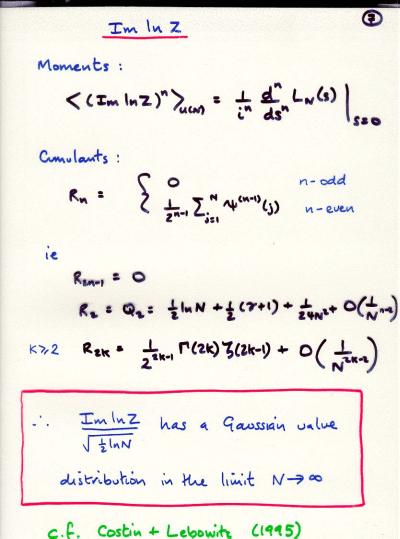 7
Im ln Z
Moments :
< (Im ln Z)ⁿ >_{U(N)} = 1/iⁿ dⁿ/dsⁿ L_N(s) |_{s=0}
Cumulants :
R_n = { 0 n-odd
1/2ⁿ⁻¹ Σ_{j=1}^{N} ψ⁽ⁿ⁻¹⁾(j) n-even
ie
R_{2m-1} = 0
R_2 = Q_2 = ½ ln N + ½(γ+1) + 1/24N² + O(1/N
k⩾2 R_{2k} = 1/2^{2k-1} Γ(2k) ζ(2k-1) + O(1/N^{2k-2})
∴ Im ln Z / √(½ ln N) has a Gaussian value
distribution in the limit N → ∞
c.f. Costin + Lebowitz (1995)